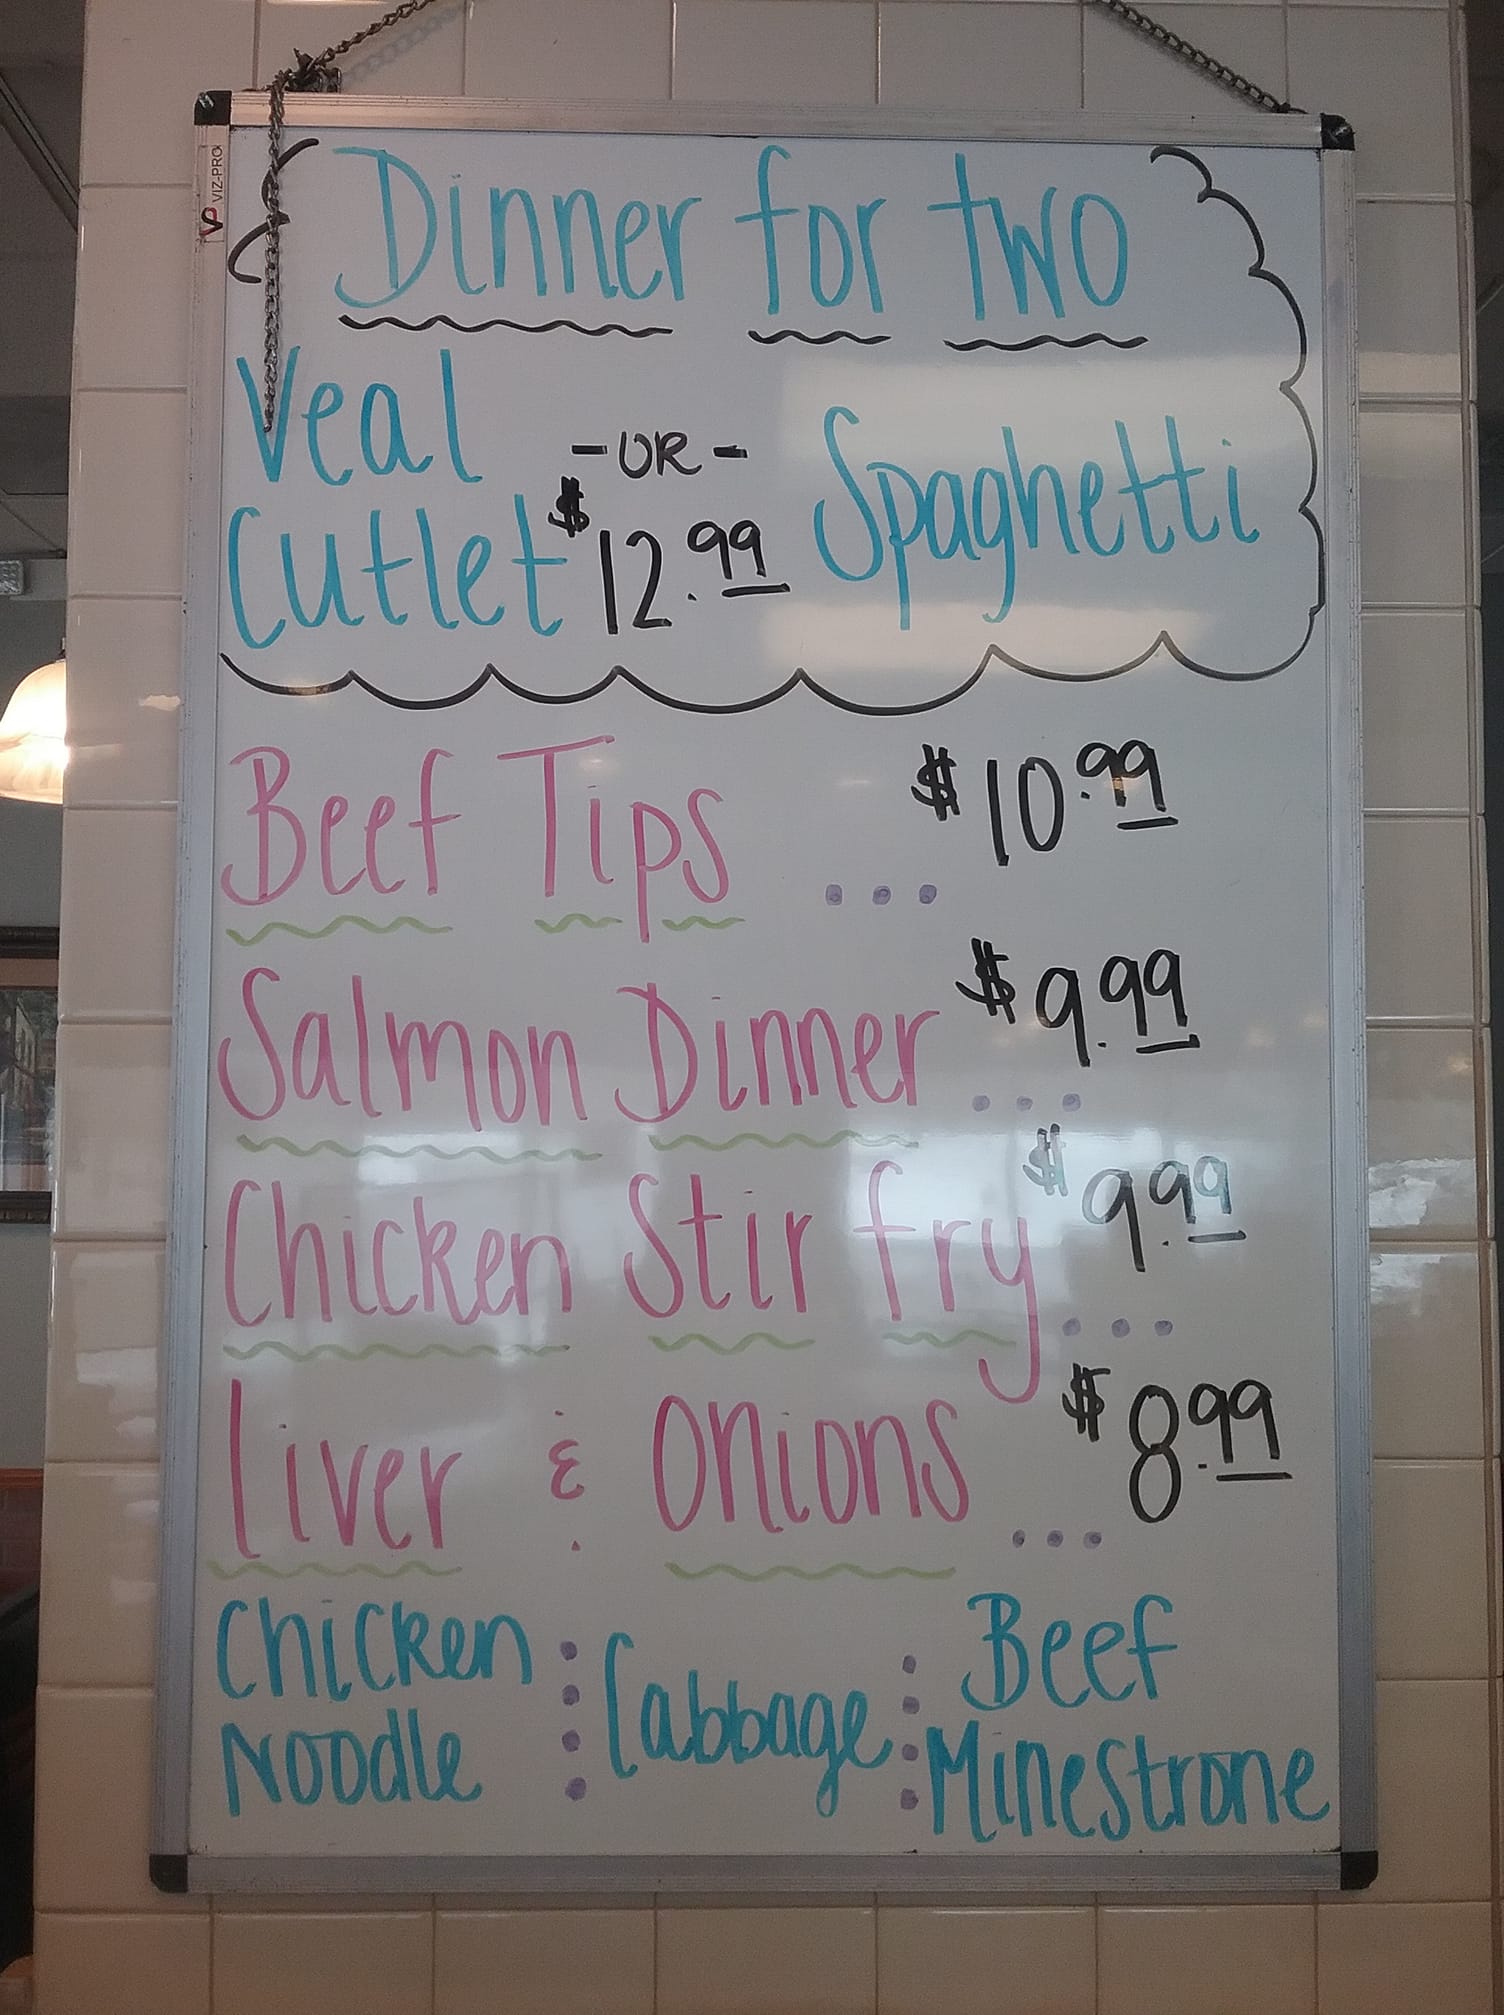 VIZ-PRO
Dinner for two
Veal
Cutlet
- OR -
$12.99
Spaghetti
Beef Tips ... $10.99
Salmon Dinner ... $9.99
Chicken Stir fry ... $9.99
Liver & Onions ... $8.99
Chicken
Noodle
Cabbage
Beef
Minestrone